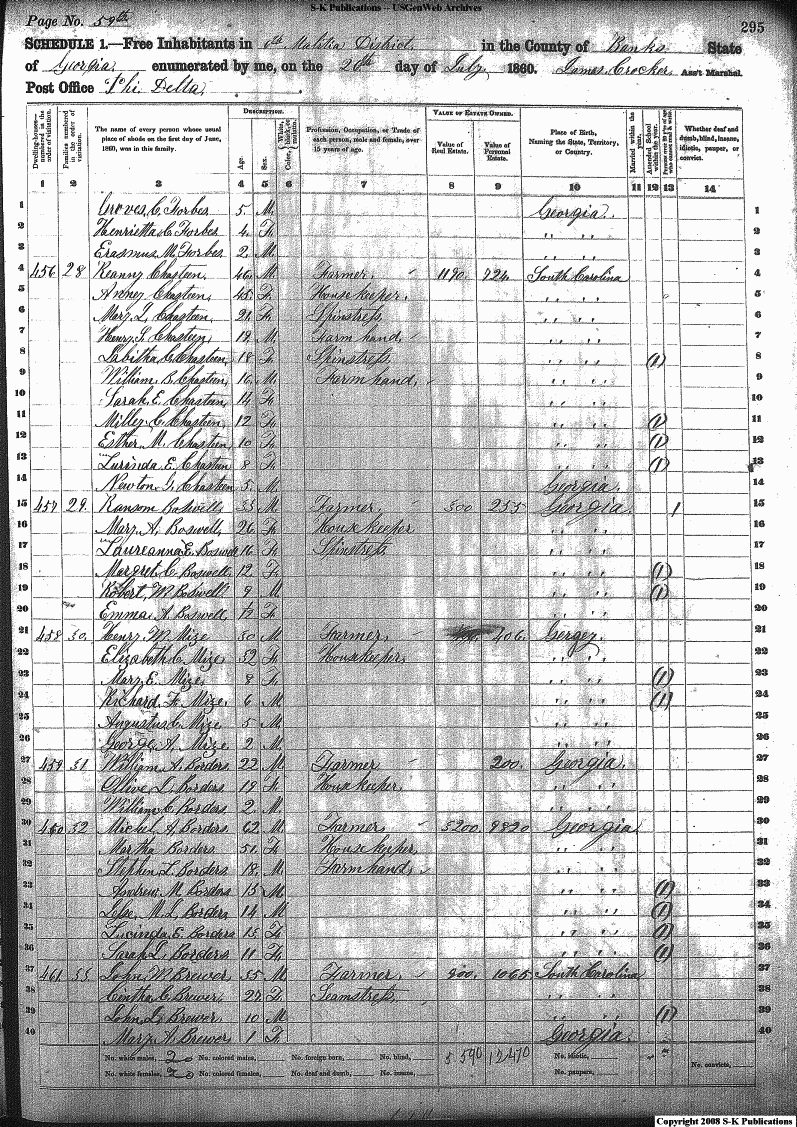 S-K Publications – USGenWeb Archives
Page No. 59th
295
SCHEDULE 1.—Free Inhabitants in 6th Militia District in the County of Banks State
of Georgia enumerated by me, on the 20th day of July 1860. James Crocker Ass't Marshal.
Post Office Phi Delta
DESCRIPTION. VALUE OF ESTATE OWNED.
Dwelling-houses numbered in the order of visitation. Families numbered in the order of visitation. The name of every person whose usual place of abode on the first day of June, 1860, was in this family. Age. Sex. Color, White, black, or mulatto. Profession, Occupation, or Trade of each person, male and female, over 15 years of age. Value of Real Estate. Value of Personal Estate. Place of Birth, Naming the State, Territory, or Country. Married within the year. Attended School within the year. Whether deaf and dumb, blind, insane, idiotic, pauper, or convict.
1 2 3 4 5 6 7 8 9 10 11 12 13 14
1 Groves C. Forbes 5 M. Georgia 1
2 Henrietta C. Forbes 4 F. " " 2
3 Erasmus M. Forbes 2 M. " " 3
4 456 28 Reanny Chasteen 46 M Farmer 1190 724 South Carolina 4
5 Anney Chasteen 45 F. Housekeeper " " 5
6 Mary L. Chasteen 21 F. Spinstress " " 6
7 Henry J. Chasteen 19 M. Farm hand " " 7
8 Tabitha C. Chasteen 18 F. Spinstress " " (1) 8
9 William B. Chasteen 16 M. Farm hand " " 9
10 Sarah E. Chasteen 14 F. " " 10
11 Milley C. Chasteen 12 F. " " (1) 11
12 Esther M. Chasteen 10 F. " " (1) 12
13 Lurinda E. Chasteen 8 F. " " (1) 13
14 Newton J. Chasteen 5 M. Georgia 14
15 457 29 Ranson Boswell 35 M. Farmer 300 255 Georgia 1 15
16 Mary A. Boswell 26 F. Housekeeper " " 16
17 Laureanna E. Boswell 16 F. Spinstress " " 17
18 Margret C. Boswell 12 F. " " (1) 18
19 Robert M. Boswell 9 M " " (1) 19
20 Emma A. Boswell F. " " 20
21 458 30 Henry W. Mize 30 M Farmer 406 Gergey 21
22 Elizabeth C. Mize 32 F. Housekeeper " " 22
23 Mary E. Mize 8 F. " " (1) 23
24 Richard F. Mize 6 M. " " (1) 24
25 Augustus C. Mize 5 M " " 25
26 George A. Mize 2 M. " " 26
27 459 31 William A. Borders 22 M. Farmer 200 Georgia 27
28 Olive L. Borders 19 F. Housekeeper " " 28
29 William C. Borders 2 M. " " 29
30 460 32 Michel A. Borders 62 M. Farmer 3200 9820 Georgia 30
31 Martha Borders 51 F. Housekeeper " " 31
32 Stephen L. Borders 18 M. Farm hand " " 32
33 Andrew M. Borders 15 M. " " (1) 33
34 M. L. Borders 14 M " " (1) 34
35 Lucinda E. Borders 13 F. " " (1) 35
36 Sarah L. Borders 11 F. " " (1) 36
37 461 33 John M. Brewer 35 M Farmer 900 1065 South Carolina 37
38 Cintha C. Brewer 27 F. Seamstress " " 38
39 John L. Brewer 10 M " " (1) 39
40 Mary A. Brewer 1 F. Georgia 40
No. white males, 20 No. colored males, No. foreign born, No. blind, 5590 12470 No. idiotic, No. convicts,
No. white females, 20 No. colored females, No. deaf and dumb, No. insane, No. paupers,
Copyright 2008 S-K Publications